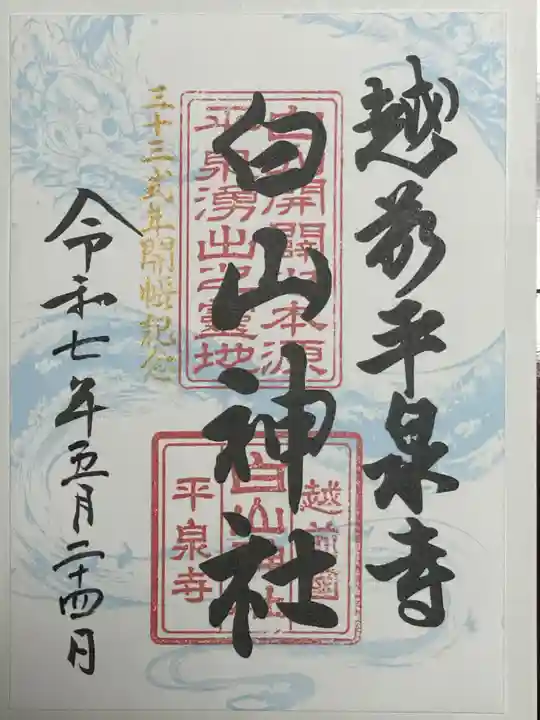 越前平泉寺
白山神社
白山開闢ノ本源
平泉湧出ノ霊地
越前國
白山神社
平泉寺
三十三式年開帳記念
令和七年五月二十四日